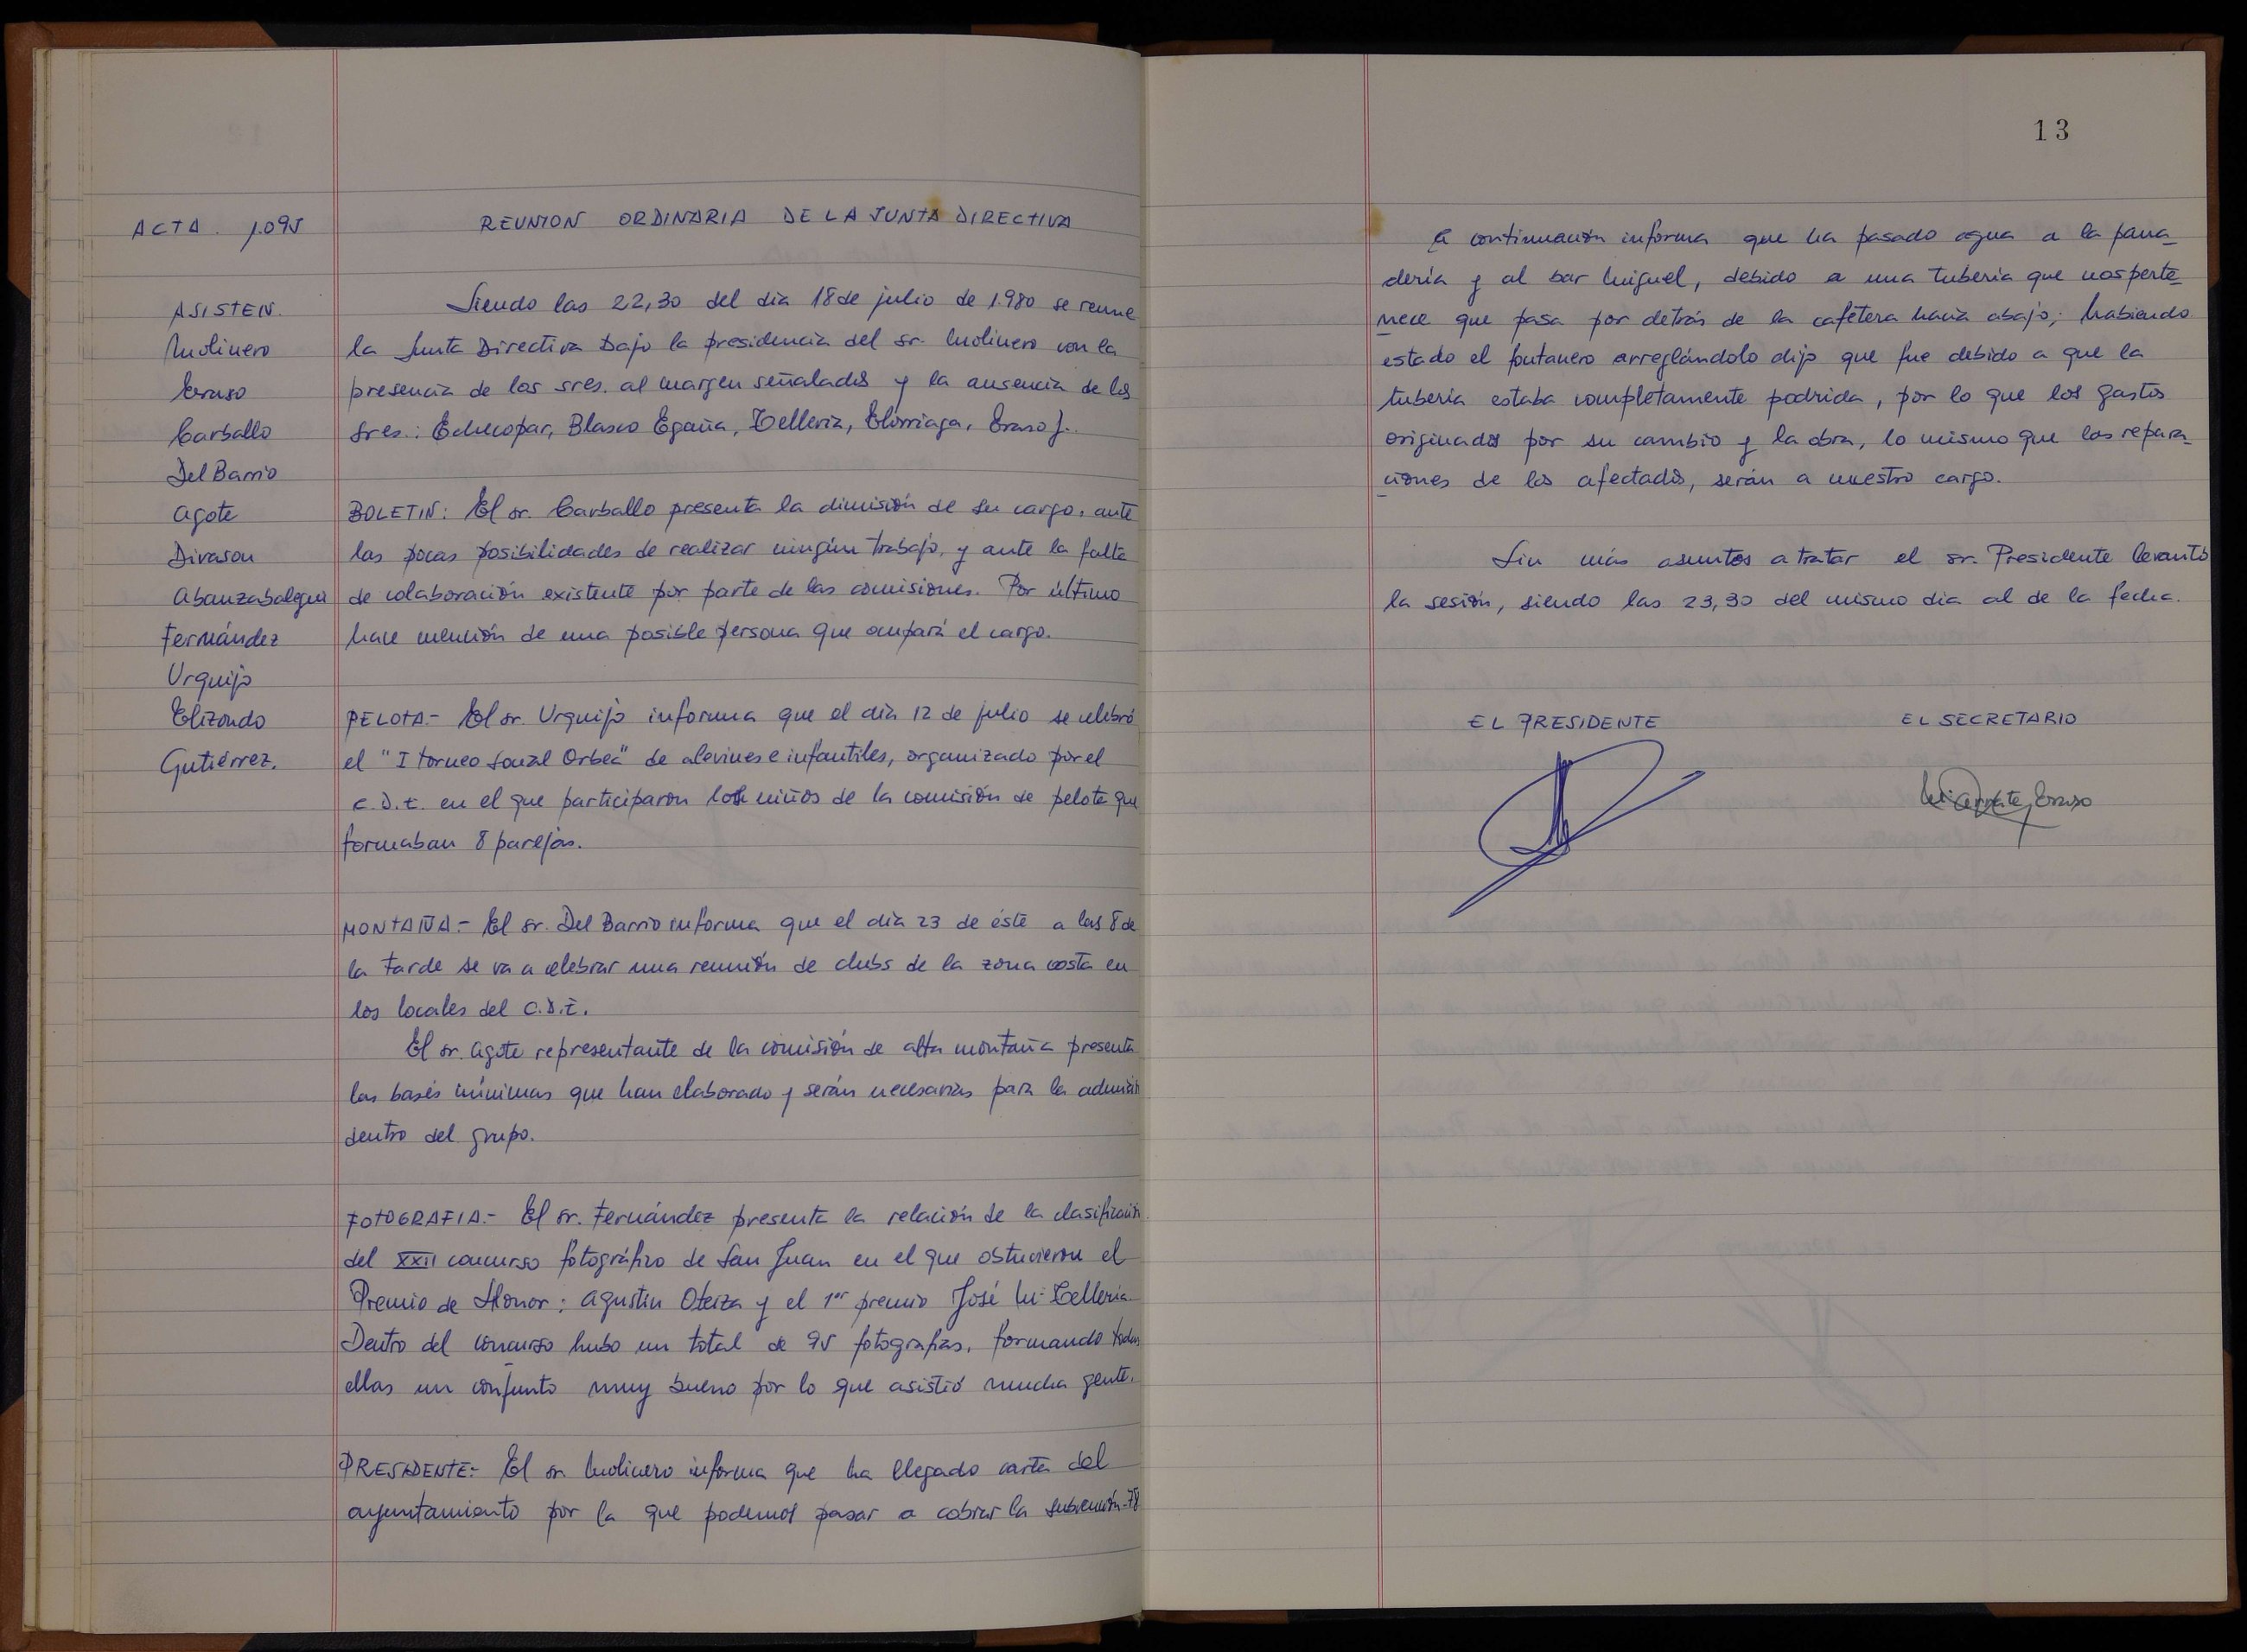 ACTA. 1.095
REUNION ORDINARIA DE LA JUNTA DIRECTIVA
ASISTEN.
Molinero
Eraso
Carballo
Del Barrio
Agote
Divason
Abanzabalegui
Fernández
Urquijo
Elizondo
Gutiérrez.
Siendo las 22,30 del dia 18 de julio de 1.980 se reune
la Junta Directiva bajo la presidencia del sr. Molinero con la
presencia de los sres. al margen señalados y la ausencia de los
sres.: Echecopar, Blasco Egaña, Telleria, Elorriaga, Eraso J..
BOLETIN: El sr. Carballo presenta la dimisión de su cargo, ante
las pocas posibilidades de realizar ningún trabajo, y ante la falta
de colaboración existente por parte de las comisiones. Por último
hace mención de una posible persona que ocupará el cargo.
PELOTA.- El sr. Urquijo informa que el dia 12 de julio se celebró
el "I torneo Orbea" de alevines e infantiles, organizado por el
C.D.E. en el que participaron los niños de la comisión de pelota que
formaban 8 parejas.
MONTAÑA.- El sr. Del Barrio informa que el dia 23 de éste a las 8 de
la tarde se va a celebrar una reunión de clubs de la zona costa en
los locales del C.D.E.
El sr. Agote representante de la comisión de alta montaña presenta
las basés mínimas que han elaborado y serán necesarias para la admisión
dentro del grupo.
FOTOGRAFIA.- El sr. Fernández presenta la relación de la clasificación
del XXII concurso fotográfico de San Juan en el que obtuvieron el
Premio de Honor: Agustin Oteiza y el 1er premio José Mª Telleria.
Dentro del concurso hubo un total de 95 fotografias, formando todas
ellas un conjunto muy bueno por lo que asistió mucha gente.
PRESIDENTE:- El sr. Molinero informa que ha llegado carta del
ayuntamiento por la que podemos pasar a cobrar la subvención-78
13
A continuación informa que ha pasado agua a la pana-
deria y al bar Miguel, debido a una tuberia que nos perte-
nece que pasa por detrás de la cafetera hacia abajo; habiendo
estado el fontanero arreglándolo dijo que fue debido a que la
tuberia estaba completamente podrida, por lo que los gastos
originados por su cambio y la obra, lo mismo que las repara-
ciones de los afectados, serán a nuestro cargo.
Sin más asuntos a tratar el sr. Presidente levantó
la sesión, siendo las 23,30 del mismo dia al de la fecha.
EL PRESIDENTE
EL SECRETARIO